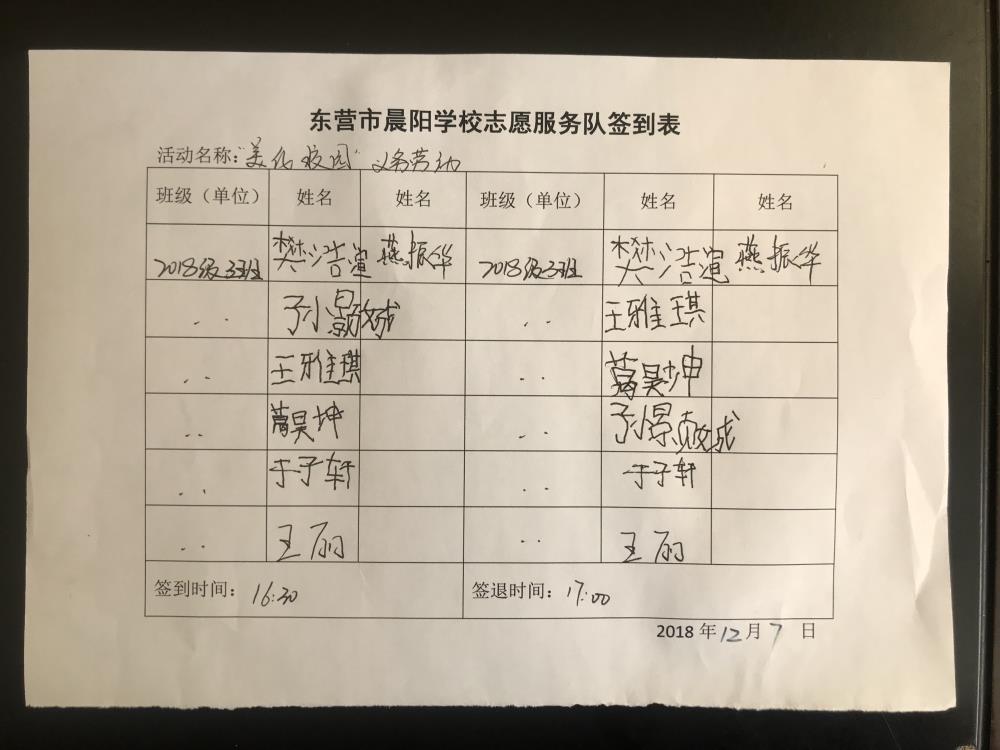 东营市晨阳学校志愿服务队签到表
活动名称："美化校园"义务劳动
班级（单位） 姓名 姓名 班级（单位） 姓名 姓名
2018级3班 樊浩萱 燕振华 2018级3班 樊浩萱 燕振华
.. .. 王雅琪
.. 王雅琪 .. 葛昊坤
.. 葛昊坤 ..
.. 于子轩 .. 于子轩
.. 王丽 .. 王丽
签到时间：16:30 签退时间：17:00
2018年12月7日